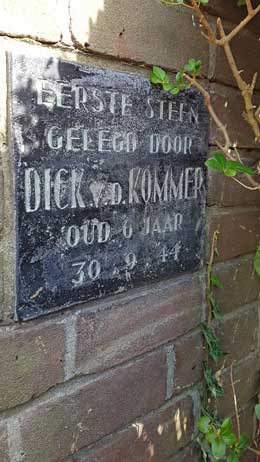 EERSTE STEEN
GELEGD DOOR
DICK v.D. KOMMER
OUD 6 JAAR
30-9-44